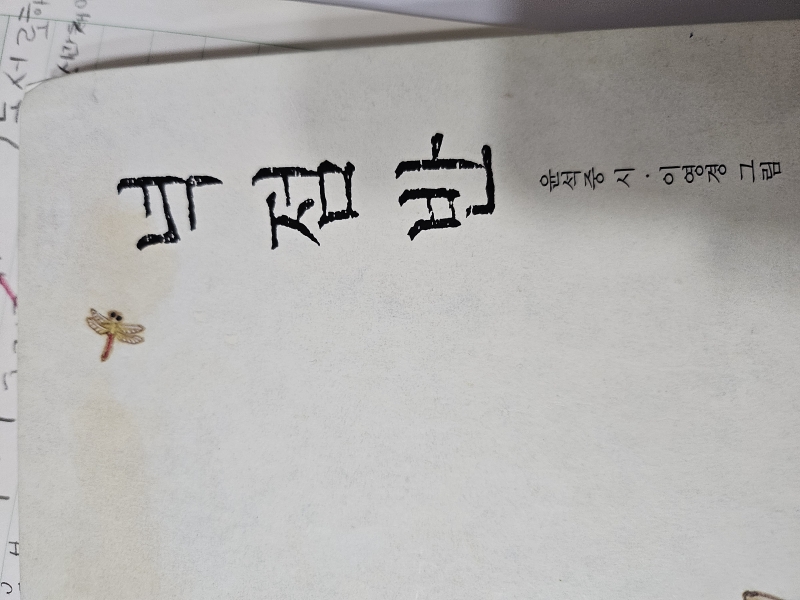 넉 점 반
윤석중 시 · 이영경 그림